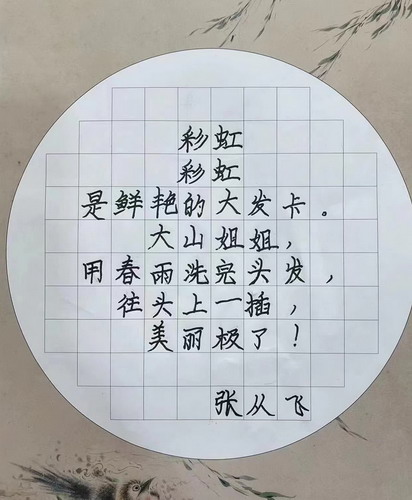 彩虹
彩虹
是鲜艳的大发卡。
大山姐姐，
用春雨洗完头发，
往头上一插，
美丽极了！
张从飞